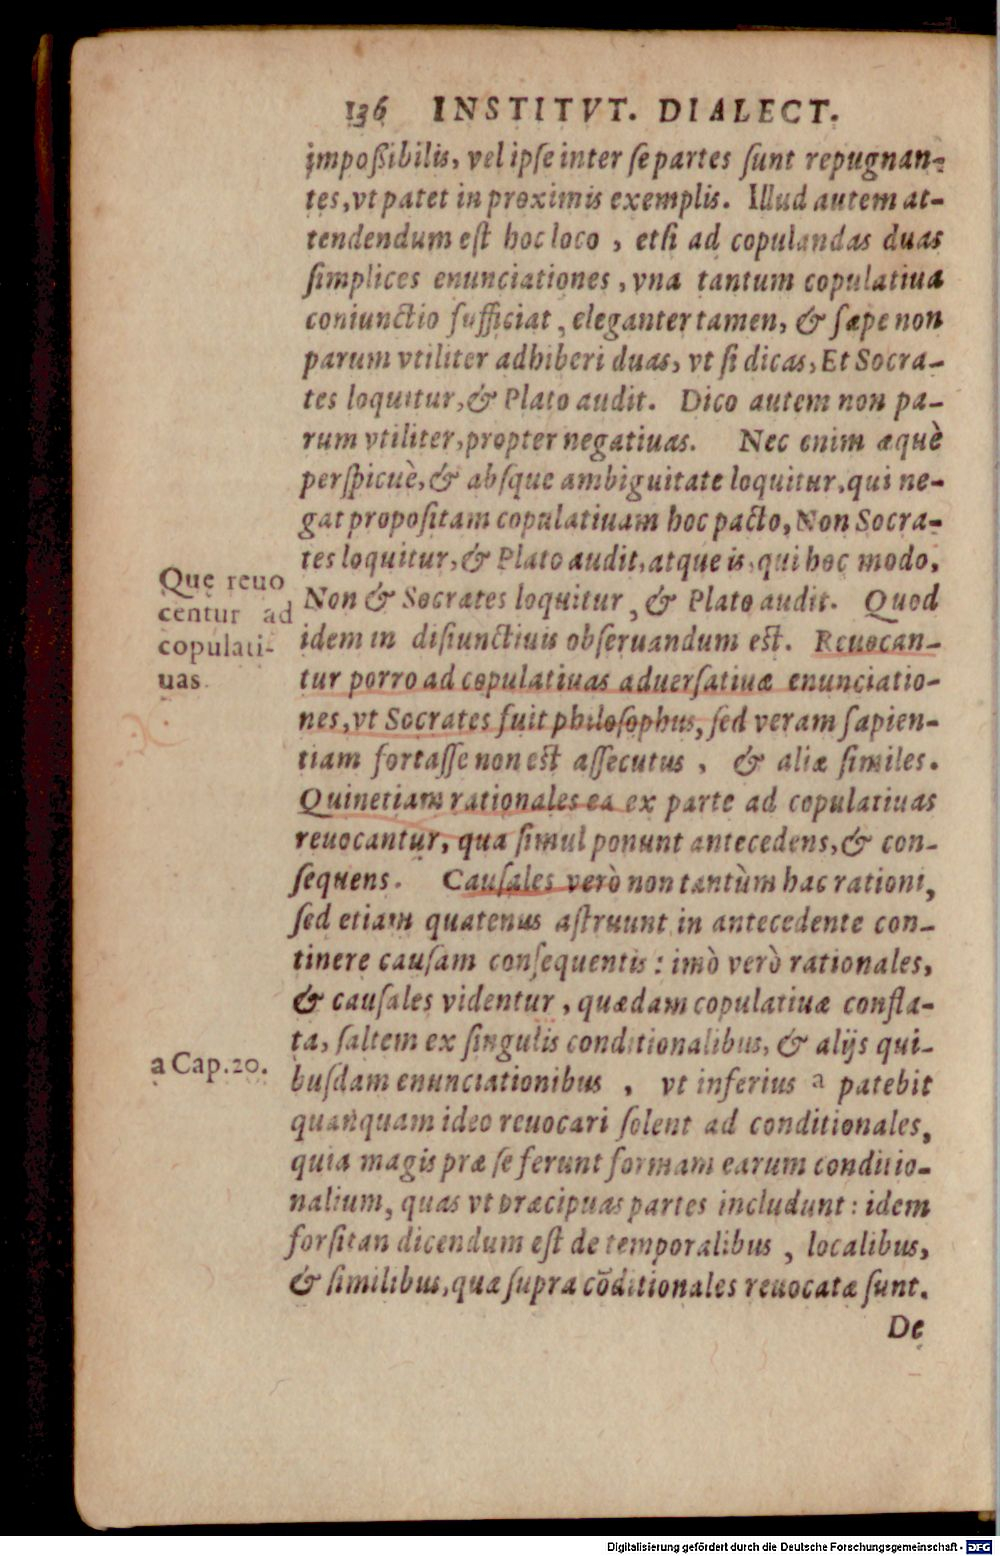 136 INSTITVT. DIALECT.
impoßibilis, vel ipſe inter ſe partes ſunt repugnan-
tes, vt patet in proximis exemplis. Illud autem at-
tendendum eſt hoc loco, etſi ad copulandas duas
ſimplices enunciationes, vna tantum copulatiua
coniunctio ſufficiat, eleganter tamen, & ſæpe non
parum vtiliter adhiberi duas, vt ſi dicas, Et Socra-
tes loquitur, & Plato audit. Dico autem non pa-
rum vtiliter, propter negatiuas. Nec enim æquè
perſpicuè, & abſque ambiguitate loquitur, qui ne-
gat propoſitam copulatiuam hoc pacto, Non Socra-
tes loquitur, & Plato audit, atque is, qui hoc modo,
Non & Socrates loquitur, & Plato audit. Quod
idem in diſiunctiuis obſeruandum eſt. Reuocan-
tur porro ad copulatiuas aduerſatiuæ enunciatio-
nes, vt Socrates fuit philoſophus, ſed veram ſapien-
tiam fortaſſe non eſt aſſecutus, & aliæ ſimiles.
Quinetiam rationales ea ex parte ad copulatiuas
reuocantur, qua ſimul ponunt antecedens, & con-
ſequens. Cauſales verò non tantùm hac rationi,
ſed etiam quatenus aſtruunt in antecedente con-
tinere cauſam conſequentis: imò verò rationales,
& cauſales videntur, quædam copulatiuæ confla-
ta, ſaltem ex ſingulis conditionalibus, & alijs qui-
buſdam enunciationibus, vt inferius a patebit
quanquam ideo reuocari ſolent ad conditionales,
quia magis præ ſe ferunt formam earum conditio-
nalium, quas vt præcipuas partes includunt: idem
forſitan dicendum eſt de temporalibus, localibus,
& ſimilibus, quæ ſupra cōditionales reuocatæ ſunt.
De
Que reuo
centur ad
copulati-
uas.
a Cap. 20.
Digitalisierung gefördert durch die Deutsche Forschungsgemeinschaft - DFG